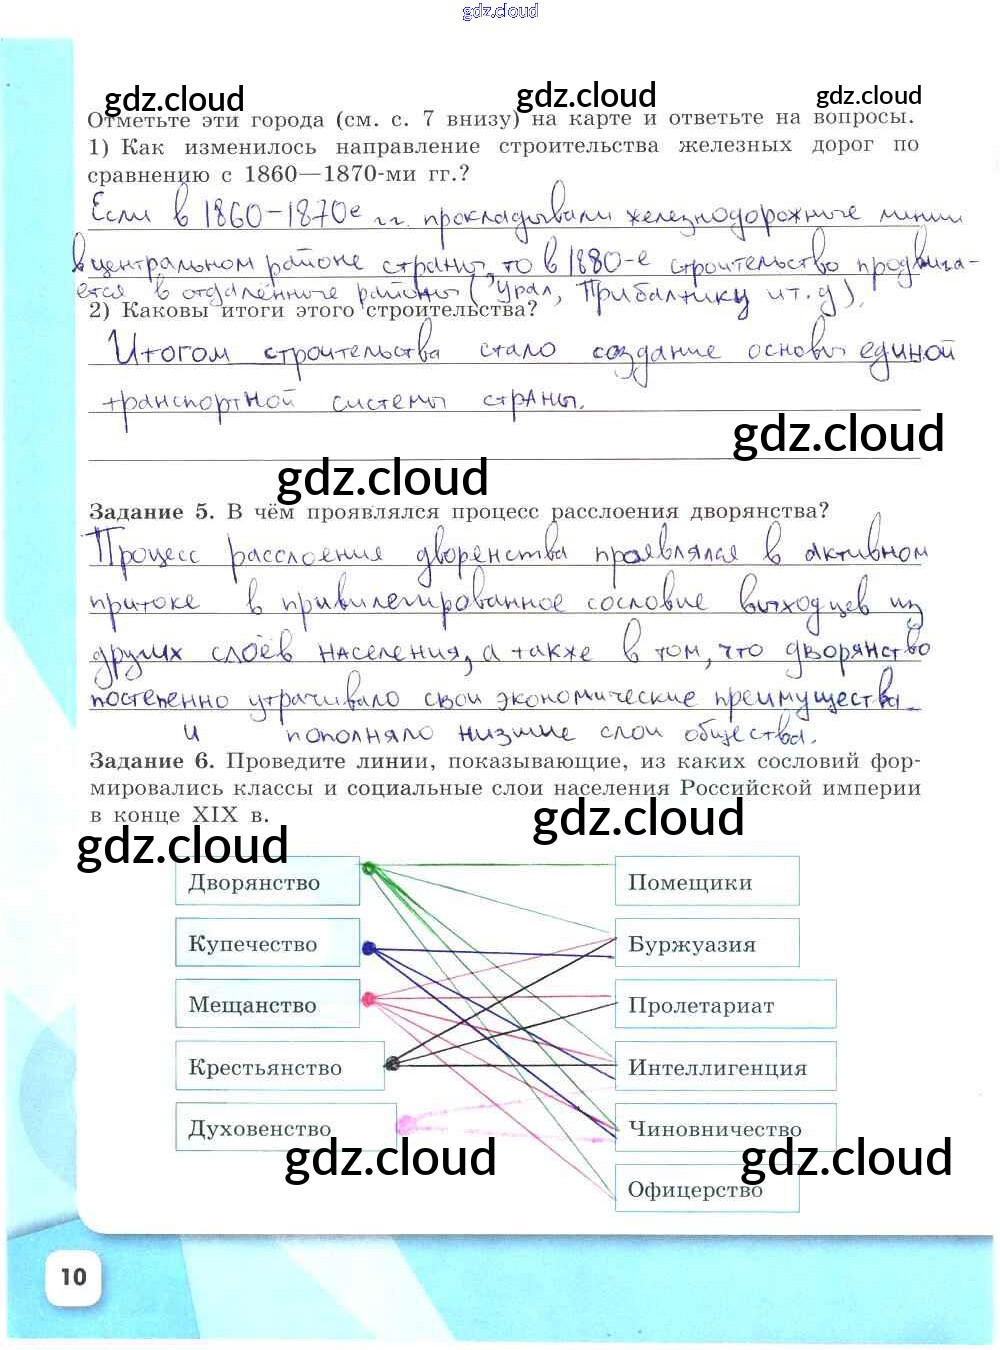 gdz.cloud
gdz.cloud gdz.cloud gdz.cloud
Отметьте эти города (см. с. 7 внизу) на карте и ответьте на вопросы.
1) Как изменилось направление строительства железных дорог по
сравнению с 1860—1870-ми гг.?
Если в 1860-1870е гг. прокладывали железнодорожные линии
в центральном районе страны, то в 1880-е строительство продвига-
ется в отдалённые районы (Урал, Прибалтику и т.д).
2) Каковы итоги этого строительства?
Итогом строительства стало создание основы единой
транспортной системы страны.
gdz.cloud
gdz.cloud
Задание 5. В чём проявлялся процесс расслоения дворянства?
Процесс расслоения дворенства проявлялся в активном
притоке в привилегированное сословие выходцев из
других слоёв населения, а также в том, что дворянство
постепенно утрачивало свои экономические преимущества
и пополняло низшие слои общества.
Задание 6. Проведите линии, показывающие, из каких сословий фор-
мировались классы и социальные слои населения Российской империи
в конце XIX в.
gdz.cloud
gdz.cloud
Дворянство Помещики
Купечество Буржуазия
Мещанство Пролетариат
Крестьянство Интеллигенция
Духовенство Чиновничество
gdz.cloud gdz.cloud
Офицерство
10